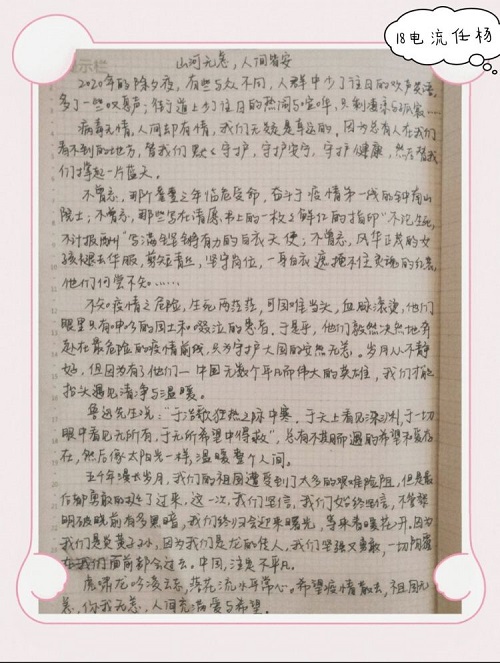 18电流任杨
山河无恙，人间皆安
2020年的除夕夜，有些与众不同，人群中少了往日的欢声笑语，
多了一些叹息声；街道上少了往日的热闹与喧哗，只剩凄凉与孤寂……
病毒无情，人间却有情，我们无疑是幸运的，因为总有人在我们
看不到的地方，替我们默默守护，守护安宁，守护健康，然后替我
们撑起一片蓝天。
不曾忘，那个耄耋之年临危受命，奋斗于疫情第一线的钟南山
院士；不曾忘，那些写在请愿书上的一枚枚鲜红的指印"不论生死，
不计报酬"写满坚毅有力的白衣天使；不曾忘，风华正茂的女
孩褪去华服，剪短青丝，坚守岗位，一身白衣遮掩不住灵魂的
他们何尝不知……
不知疫情之危险，生死两茫茫，可国难当头，血脉滚烫，他们
眼里只有中华的国土和啜泣的患者。于是乎，他们毅然决然地奔
赴在最危险的疫情前线，只为守护大国的安然无恙。岁月从不静
好，但因为有了他们——中国无数个平凡而伟大的英雄，我们才能
抬头遇见清净与温暖。
鲁迅先生说："于浩歌狂热之际中寒，于天上看见深渊，于一切
眼中看见无所有，于无所希望中得救"，总有不期而遇的希望和爱存
在，然后像太阳光一样，温暖整个人间。
五千年漫长岁月，我们的祖国遭受到了太多的艰难险阻，但是最
后都勇敢的挺了过来，这一次，我们坚信，我们始终坚信，不管黎
明破晓前有多黑暗，我们终归会迎来曙光，等来春暖花开。因为
我们是炎黄子孙，因为我们是龙的传人，我们坚强又勇敢，一切阴霾
在我们面前都会过去。中国，注定不平凡。
虎啸龙吟凌云志，落花流水平常心。希望疫情散去，祖国无
恙，你我无恙，人间充满爱与希望。